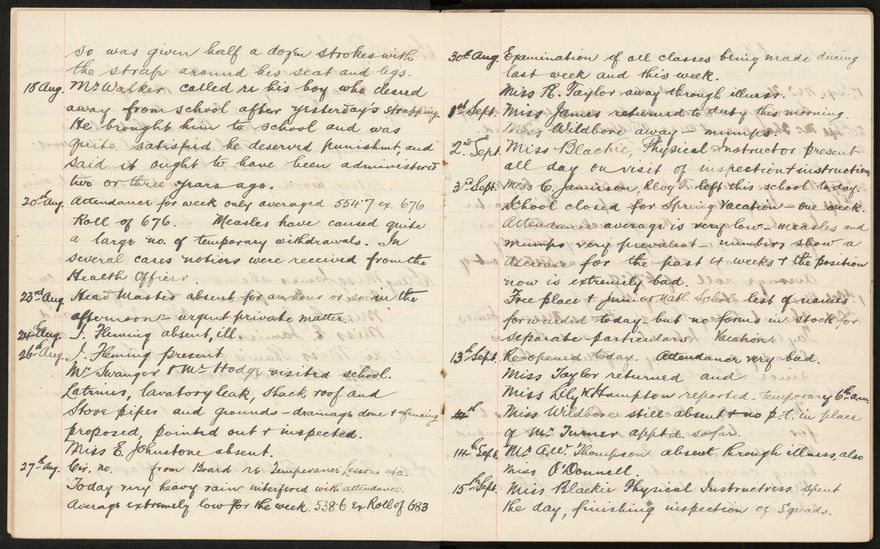 so was given half a dozen strokes with
the strap around his seat and legs.
18 Aug. Mr Walker called re his boy who cleared
away from school after yesterday's strapping.
He brought him to school and was
quite satisfied he deserved punishmt, and
said it ought to have been administered
two or three years ago.
20th Aug. Attendance for week only averaged 554.7 ex. 676
Roll of 676. Measles have caused quite
a large no. of temporary withdrawals. In
several cases notices were received from the
Health Officer.
23rd Aug. Head Master absent for an hour or so in the
afternoon - urgent private matter.
24th Aug. J. Fleming absent, ill.
26th Aug. J. Fleming present.
Mr Swanger & Mr Hodge visited school.
Latrines, lavatory leak, shack roof and
stove pipes and grounds - drainage done & fencing
proposed, pointed out & inspected.
Miss E. Johnstone absent.
27th Aug. Cir. no. from Board re Temperance Lessons etc.
Today very heavy rain interfered with attendance.
Average extremely low for the week. 538.6 ex Roll of 683
30th Aug. Examination of all classes being made during
last week and this week.
Miss R. Taylor away through illness.
1st Sept. Miss James returned to duty this morning.
Miss Wildbore away - mumps.
2nd Sept. Miss Blackie, Physical Instructor present
all day on visit of inspection & instruction
3rd Sept. Miss C. Jamieson, left this school today.
School closed for Spring Vacation - one week.
Attendance average is very low - measles and
mumps very prevalent - numbers show a
decrease for the past 4 weeks & the position
now is extremely bad.
Free place & Junior Natl. Schol. list of names
forwarded today - but no forms in stock for
separate particulars Vacation.
13th Sept. Re-opened today. Attendance very bad.
Miss Taylor returned and
Miss Lily W. Hampton reported - temporary 6th assn.
Miss Wildbore still absent & no p.t. in place
of Mr Turner apptd. so far.
14th Sept. Mr A.W. Thompson absent through illness, also
Miss O'Donnell.
15th Sept. Miss Blackie Physical Instructress spent
the day, finishing inspection of Squads.